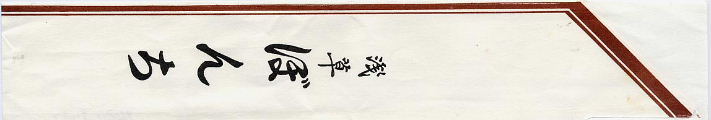 淺草
ぼんち